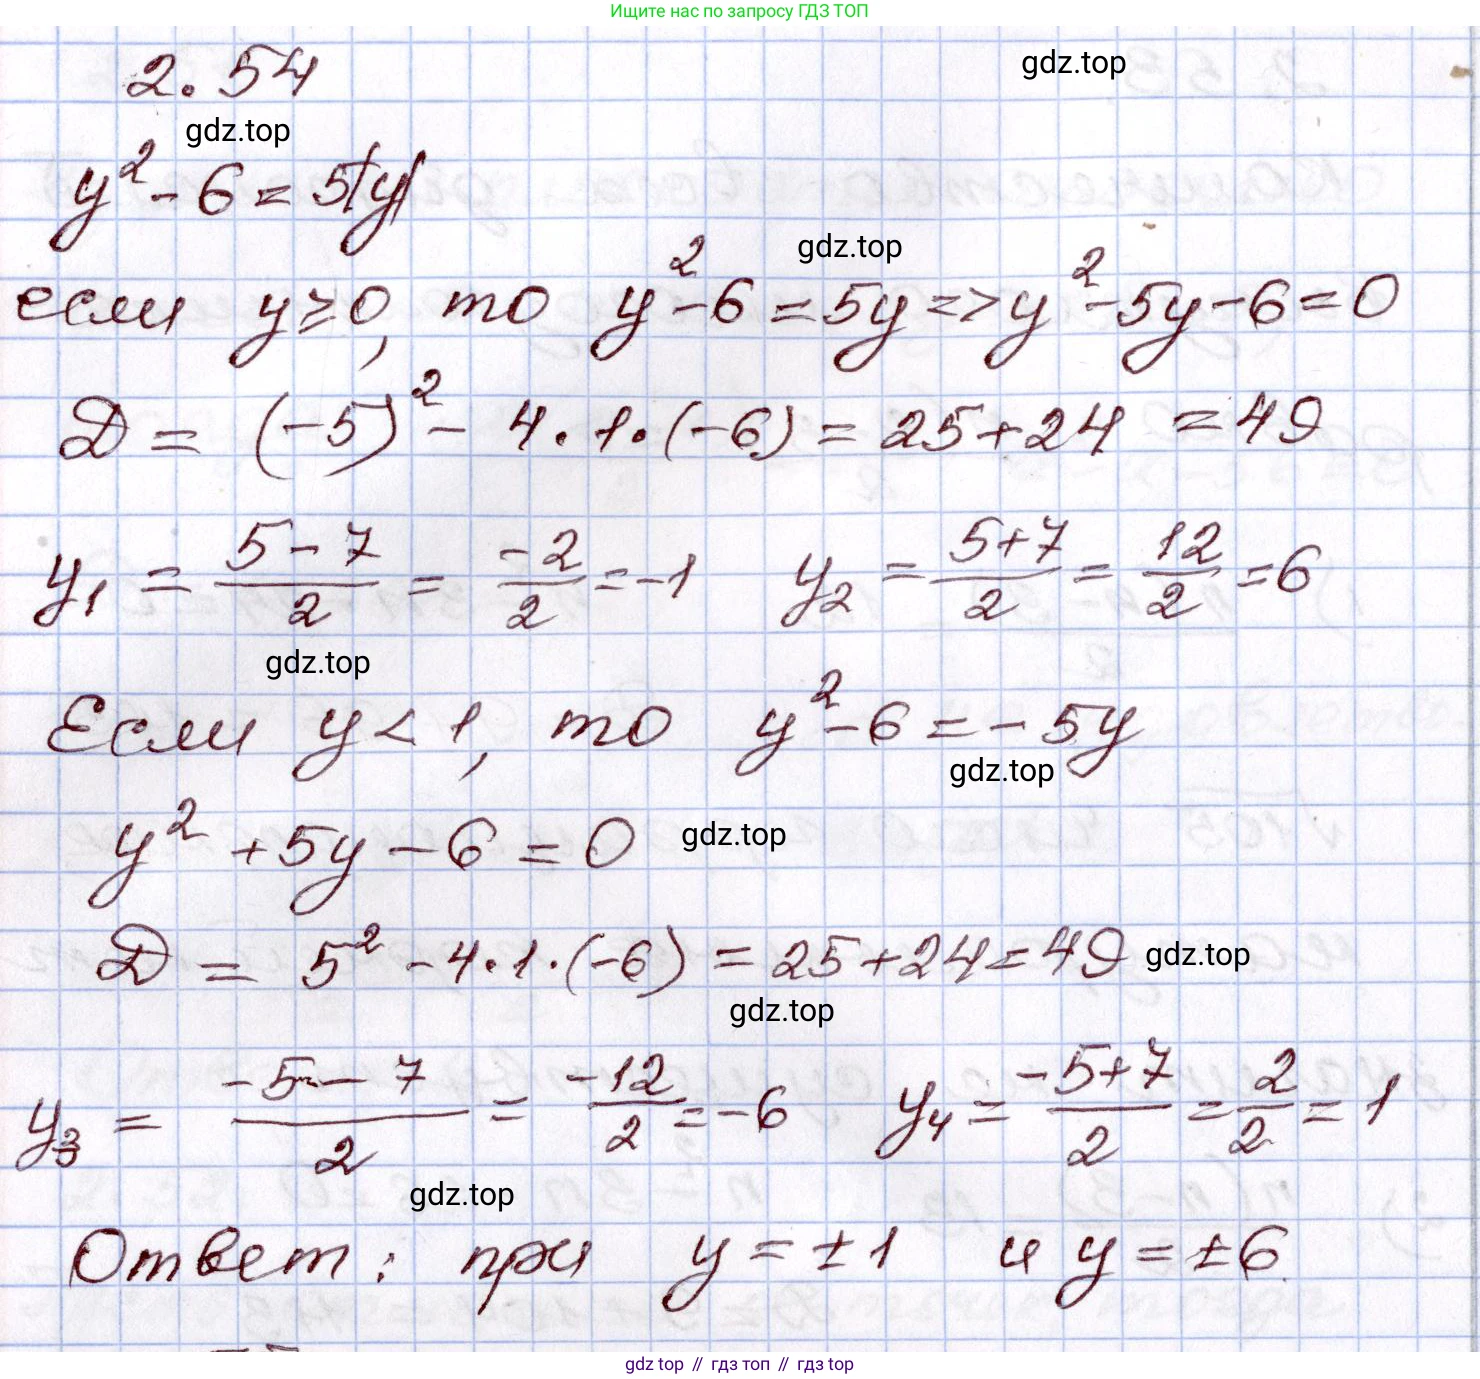 Ищите нас по запросу ГДЗ ТОП
2.54
gdz.top
gdz.top
y² - 6 = 5|y|
gdz.top
если y ≥ 0, то y² - 6 = 5y => y² - 5y - 6 = 0
D = (-5)² - 4 · 1 · (-6) = 25 + 24 = 49
y₁ = (5 - 7)/2 = -2/2 = -1 y₂ = (5+7)/2 = 12/2 = 6
gdz.top
Если y < 1, то y² - 6 = - 5y
gdz.top
y² + 5y - 6 = 0 gdz.top
D = 5² - 4 · 1 · (-6) = 25 + 24 = 49 gdz.top
gdz.top
y₃ = (-5 - 7)/2 = -12/2 = -6 y₄ = (-5+7)/2 = 2/2 = 1
gdz.top
Ответ: при y = ±1 и y = ±6
gdz top // гдз топ // гдз top